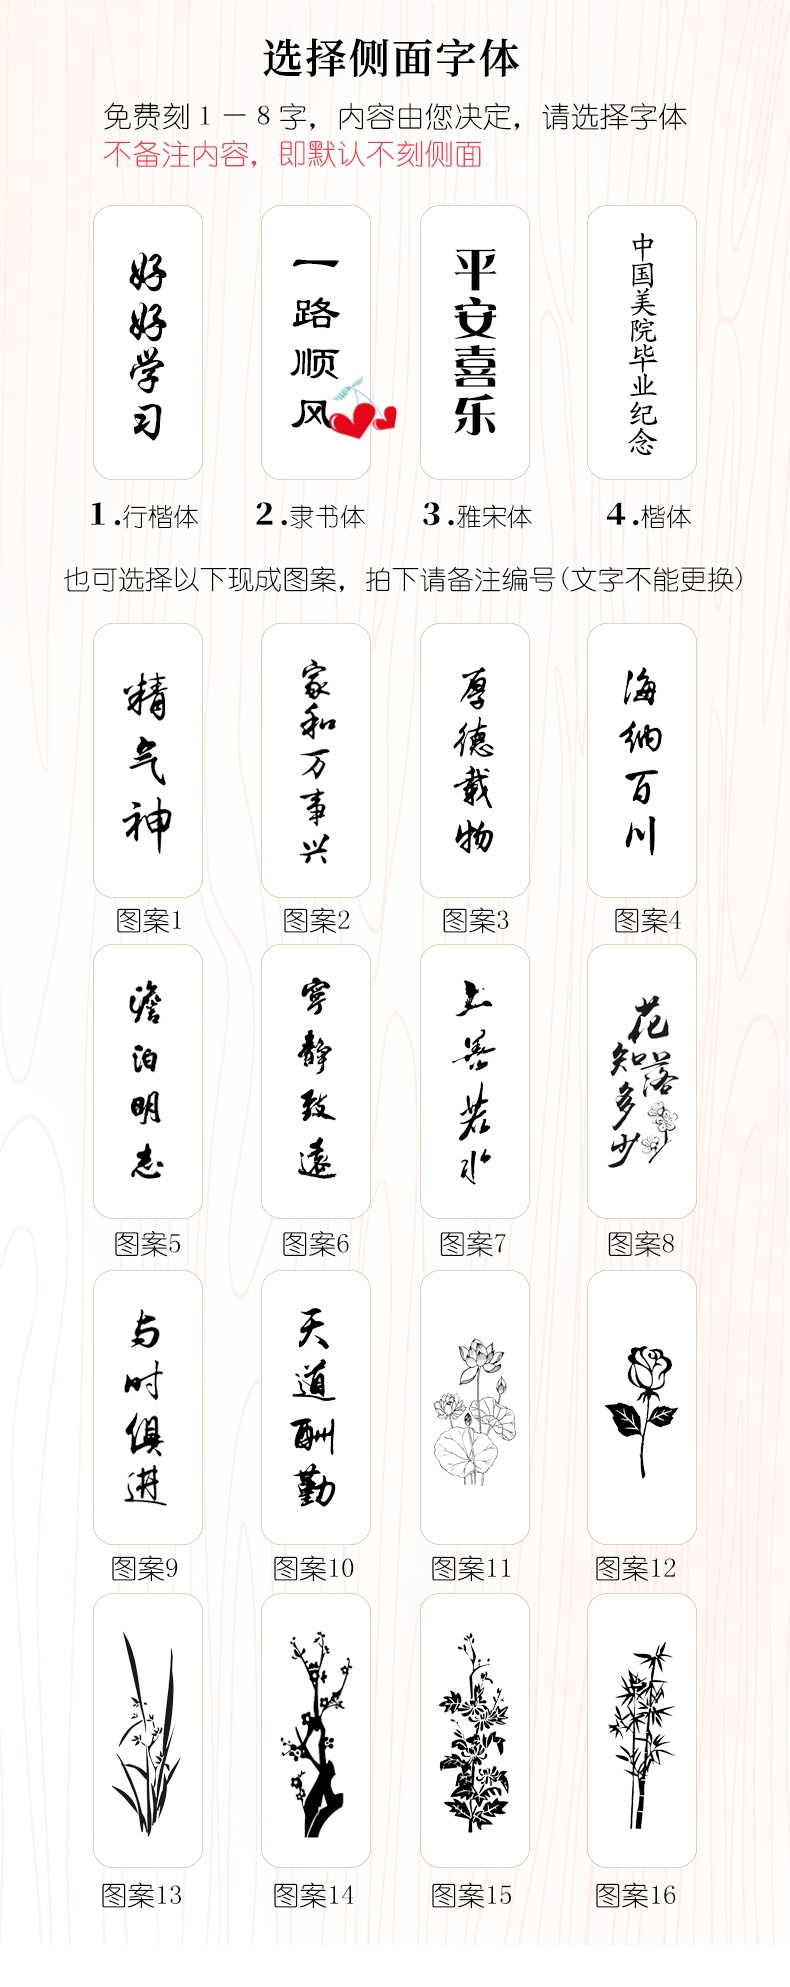 选择侧面字体
免费刻1－8字，内容由您决定，请选择字体
不备注内容，即默认不刻侧面
好好学习
一路顺风
平安喜乐
中国美院毕业纪念
1.行楷体
2.隶书体
3.雅宋体
4.楷体
也可选择以下现成图案，拍下请备注编号(文字不能更换)
精气神
家和万事兴
厚德载物
海纳百川
图案1
图案2
图案3
图案4
澹泊明志
宁静致远
上善若水
花落
知多少
图案5
图案6
图案7
图案8
与时俱进
天道酬勤
图案9
图案10
图案11
图案12
图案13
图案14
图案15
图案16